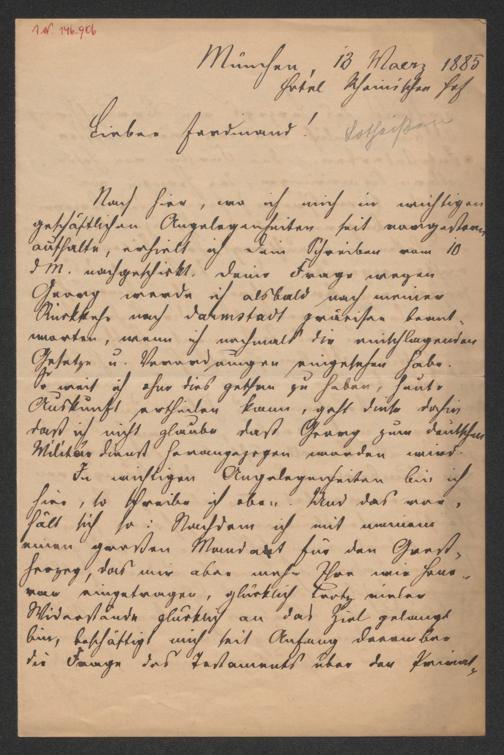 I.N. 146.906
München, 13 Maerz 1885
Hotel Rheinischer Hof
Lieber Ferdinand!
Lotheißen
Nach hier, wo ich mich in wichtigen
geschäftlichen Angelegenheiten seit vorgestern
aufhalte, erhielt ich Dein Schreiben vom 10
d M. nachgeschickt. Deine Frage wegen
Georg werde ich alsbald nach meiner
Rückkehr nach Darmstadt präcise beant-
worten, wenn ich nochmals die einschlagenden
Gesetze u. Verordnungen eingesehen habe.
So weit ich ohne dies gethan zu haben, heute
Auskunft ertheilen kann, geht diese dahin
daß ich nicht glaube daß Georg zum deutschen
Militärdienst herangezogen werden wird.
In wichtigen Angelegenheiten bin ich
hier, so schreibe ich oben. Und das ver-
hält sich so: Nachdem ich mit meinem
einen großen Mandat für den Groß-
herzog, das mir aber mehr Ehre wie Hono-
rar eingetragen, glücklich trotz vieler
Widerstände glücklich an das Ziel gelangt
bin, beschäftigt mich seit Anfang December
die Frage des Testaments über den Privat-